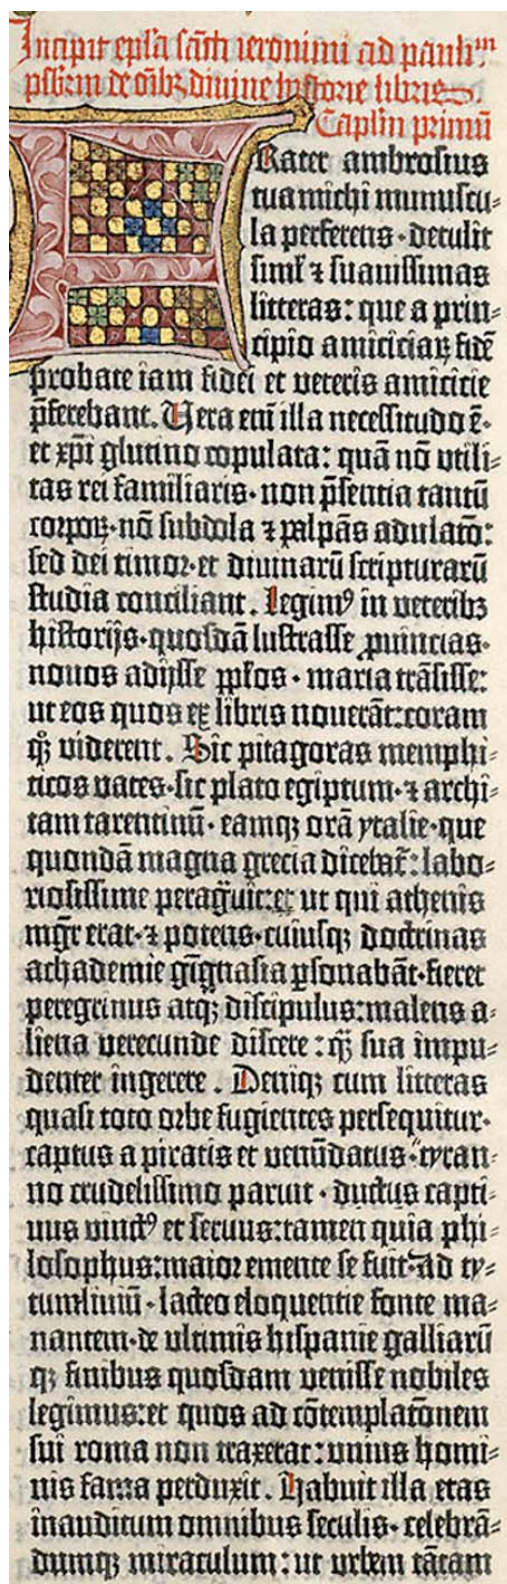 Incipit epl̄a sācti ieronimi ad pauliᵐ
psb̄rm de oībꝫ diuine hystorie libris.
Capl̄m primū
Frater ambrosius
tua michi munuscu-
la perferens· detulit
simĺ ⁊ suauissimas
litteras: que a prin-
cipio amiciciaꝝ fidē
probate iam fidei et veteris amicicie
p̄ferebant. Uera eni illa necessitudo ē·
et xp̄i glutino copulata: quā nō utili-
tas rei familiaris· non p̄sentia tantū
corpoꝝ· nō subdola ⁊ palpās adulatō:
sed dei timor· et diuinarū scripturarū
studia conciliant. Legimꝰ in veteribꝫ
historijs· quosdā lustrasse ꝓuincias·
nouos adijsse ppl̄os· maria trāsisse:
ut eos quos ex libris nouerāt: coram
qꝫ viderent. Sic pitagoras memphi-
ticos vates· sic plato egiptum· ⁊ archi-
tam tarentinū· eamqꝫ orā ytalie· que
quondā magna grecia dicebat̄: labo-
riosissime peragᵃuit: et ut qui athenis
mgr̄ erat· ⁊ potens· cuiusqꝫ doctrinas
achademie gignasia ꝑsonabāt· fieret
peregrinus atqꝫ discipulus: malens a-
liena verecunde discere: qꝫ sua impu-
denter ingerere. Deniqꝫ cum litteras
quasi toto orbe fugientes persequitur·
captus a piratis et venūdatus· tyran-
no crudelissimo paruit· ductus capti-
uus vinctꝰ et seruus: tamen quia phi-
losophus: maior emente se fuit· Ad ty-
tumliuiū· lacteo eloquentie fonte ma-
nantem· de ultimis hispanie galliarū
qꝫ finibus quosdam venisse nobiles
legimus: et quos ad cōtemplatōnem
sui roma non traxerat: unius homi-
nis fama perduxit. Habuit illa etas
inauditum omnibus seculis· celebrā-
dumqꝫ miraculum: ut urbem tātam